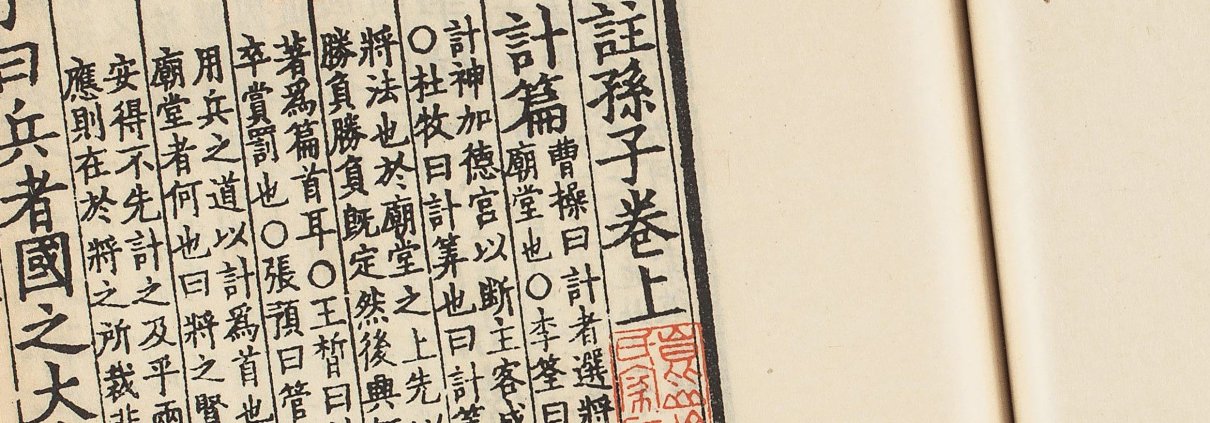 註孫子卷上
計篇
曹操曰計者選將
廟堂也○李筌曰
計神加德宮以断主客成
○杜牧曰計筭也曰計筭
將法也於廟堂之上先以
勝負勝負既定然後興
著爲篇首耳○王晳曰
卒賞罰也○張預曰管
用兵之道以計爲首也
廟堂者何也曰將之賢
安得不先計之及乎兩
應則在於將之所裁非
曰兵者國之大